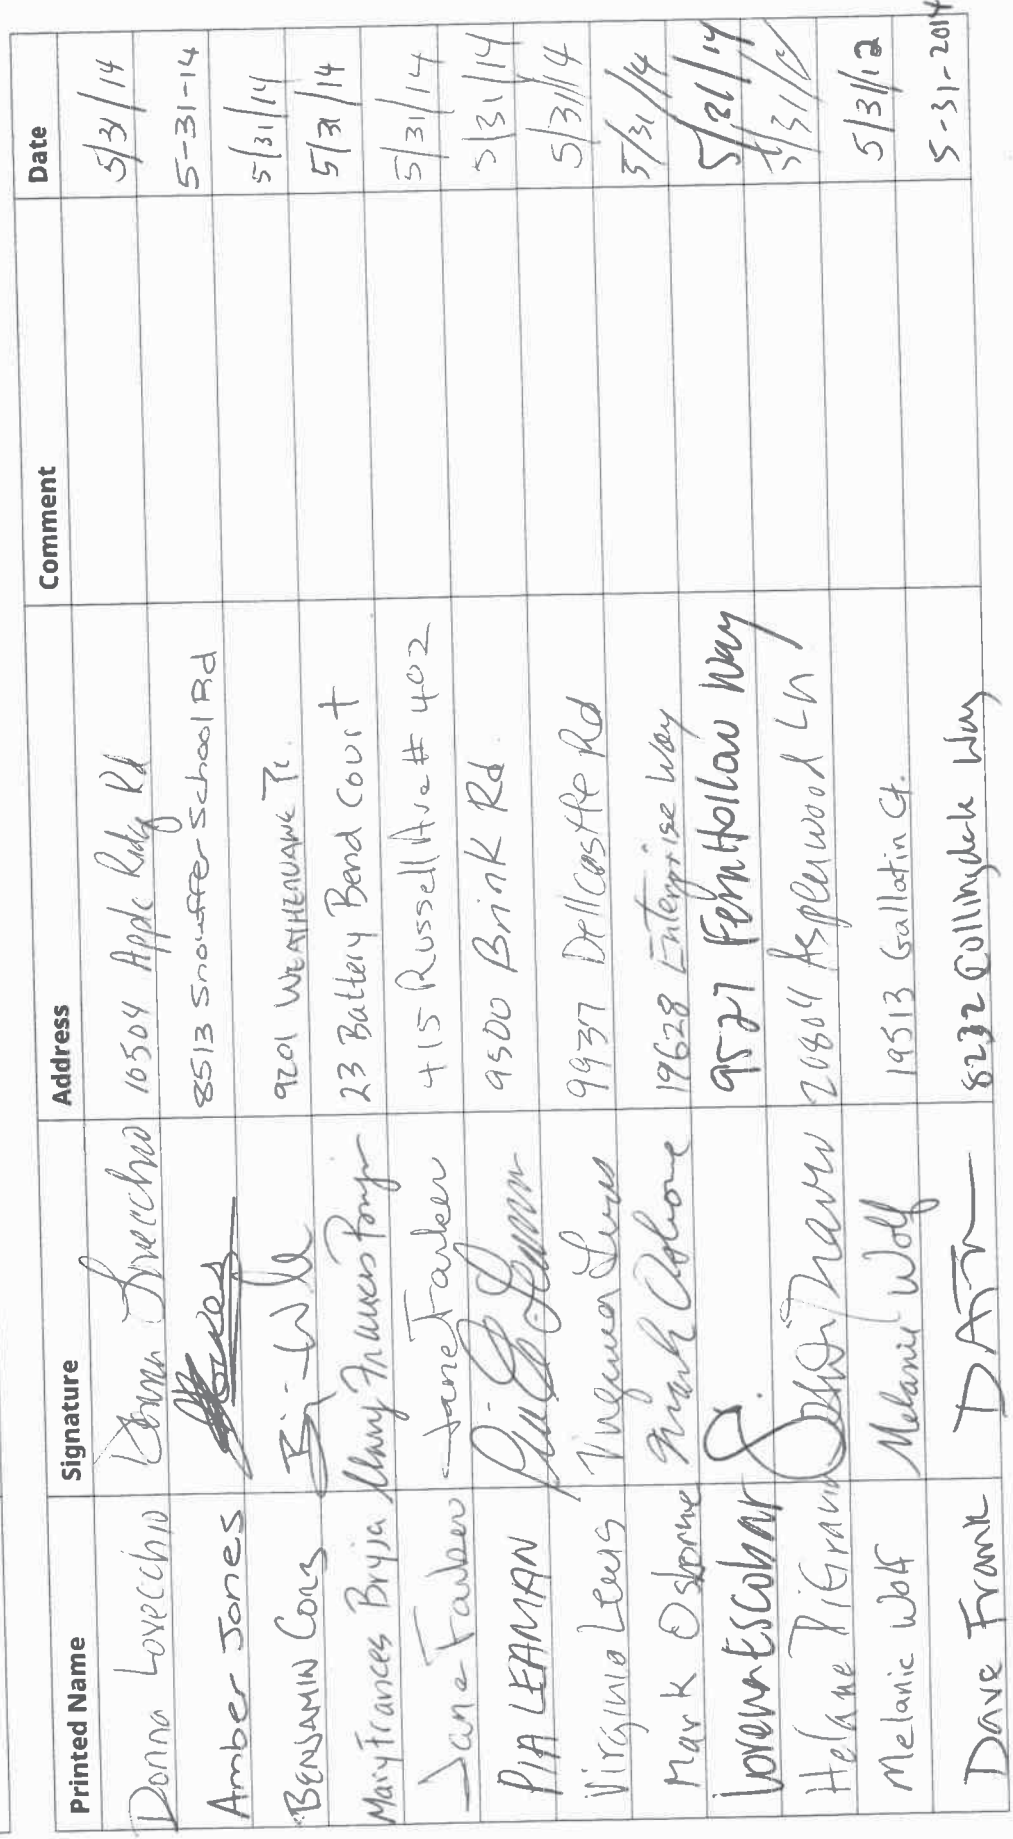 Printed Name Signature Address Comment Date
Donna Lovecchio Donna Lovecchio 10504 Apple Ridge Rd 5/31/14
Amber Jones 8513 Snouffer School Rd 5-31-14
BENJAMIN 9201 WEATHERVANE Pl. 5/31/14
Mary Frances Bryja Mary Frances 23 Battery Bend Court 5/31/14
Jane Farber Jane Farber 415 Russell Ave # 402 5/31/14
PIA LEAMAN 9500 Brink Rd. 5/31/14
Virginia Lewis Virginia Lewis 9937 Dellcastle Rd 5/31/14
Mark Osborne Mark Osborne 19628 Enterprise Way 5/31/14
Lorena Escobar 9527 Fern Hollow Way 5/31/14
Helane 20804 Aspenwood Ln 5/31/
Melanie Wolf Melanie Wolf 19513 Gallatin Ct. 5/31/12
Dave Frank 8232 Collingdale Way 5-31-2014